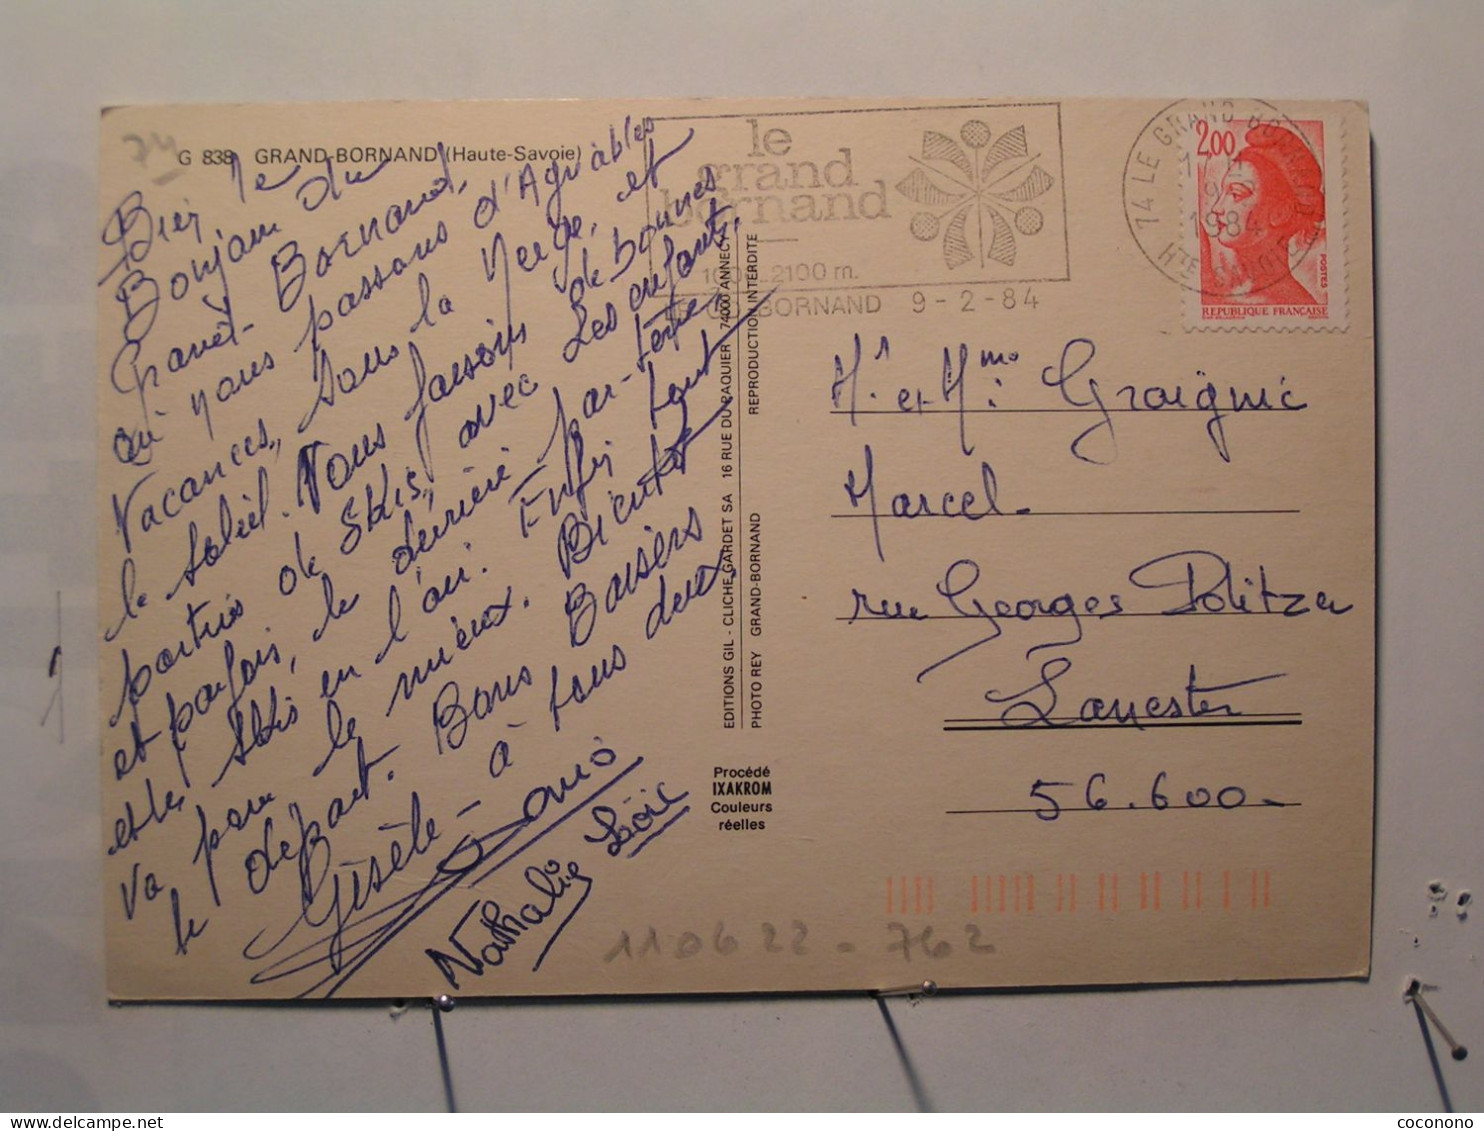 74
G 838 GRAND-BORNAND (Haute-Savoie)
Bien le
Bonjour du
Grand-Bornand,
où nous passons d'Agréables
Vacances, dans la Neige, et
le soleil. Nous faisons de bonnes
parties de skis, avec les enfants,
et parfois, le derrière par-terre,
et les skis en l'air. Enfin tout
va pour le mieux. Bientôt
le départ. Bons Baisers
Gisèle - à tous deux
Nathalie Loïc
le
grand
bornand
2100 m.
BORNAND 9-2-84
74 LE GRAND BORNAND
9-2
1984
Hte SAVOIE
2,00
POSTES
REPUBLIQUE FRANÇAISE
EDITIONS GIL - CLICHE GARDET SA 16 RUE DU PAQUIER 74000 ANNECY
PHOTO REY GRAND-BORNAND REPRODUCTION INTERDITE
Procédé
IXAKROM
Couleurs
réelles
Mr et Mme Graignic
Marcel
rue Georges Politzer
Lanester
56.600
110622-762
coconono